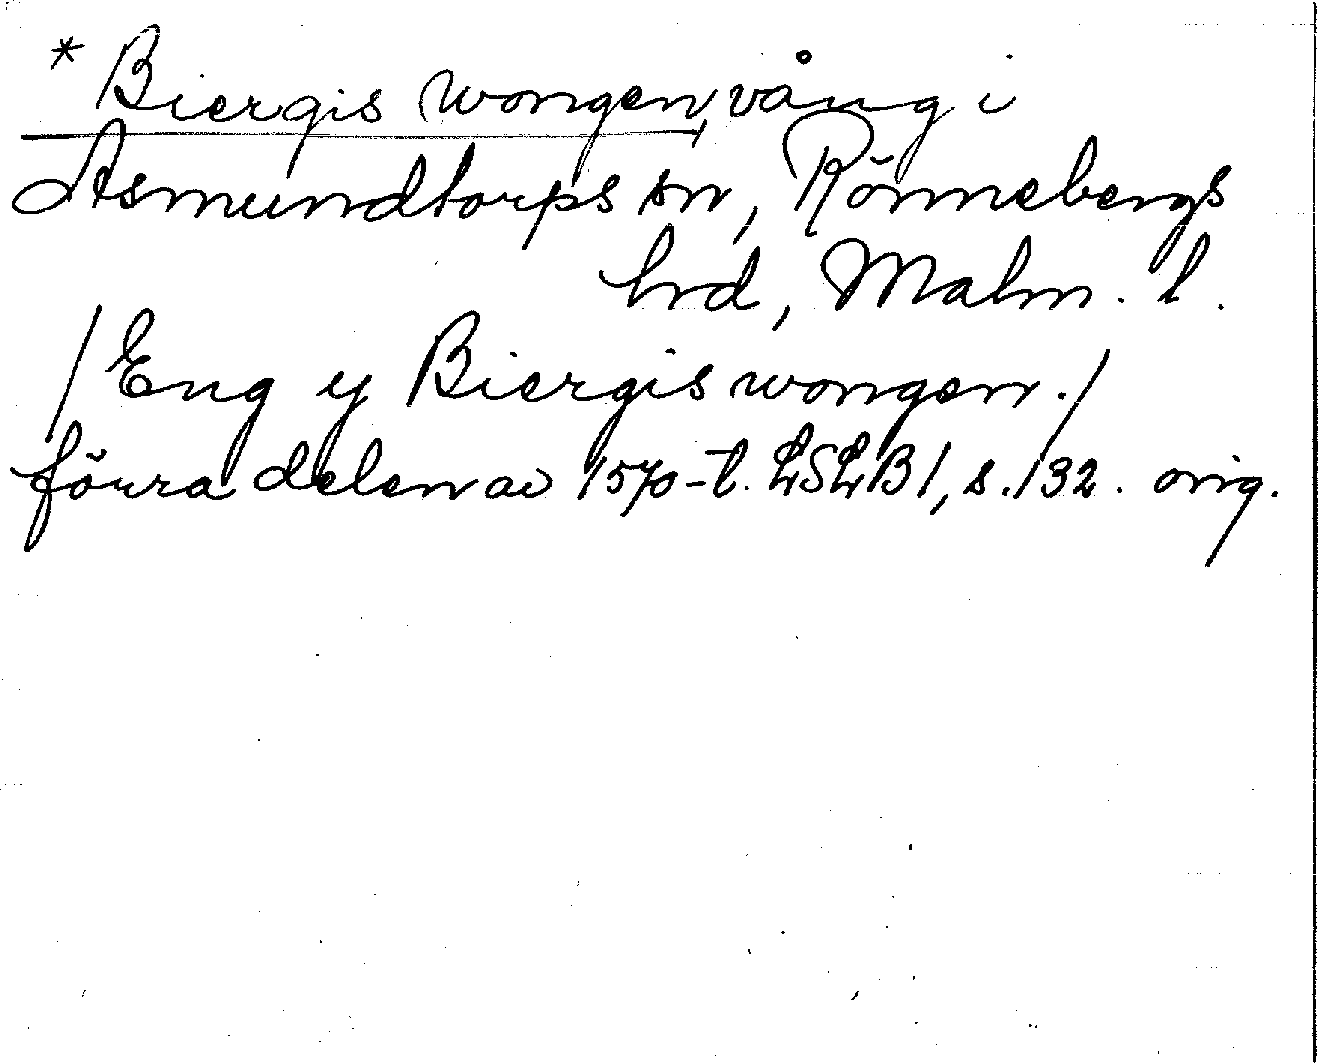 * Biergis wongen, vång i
Asmundtorps sn, Rönnebergs
hrd, Malm. l.
/ Eng y Biergis wongen. /
förra delen av 1570-t. LSLB1, s. 132. orig.